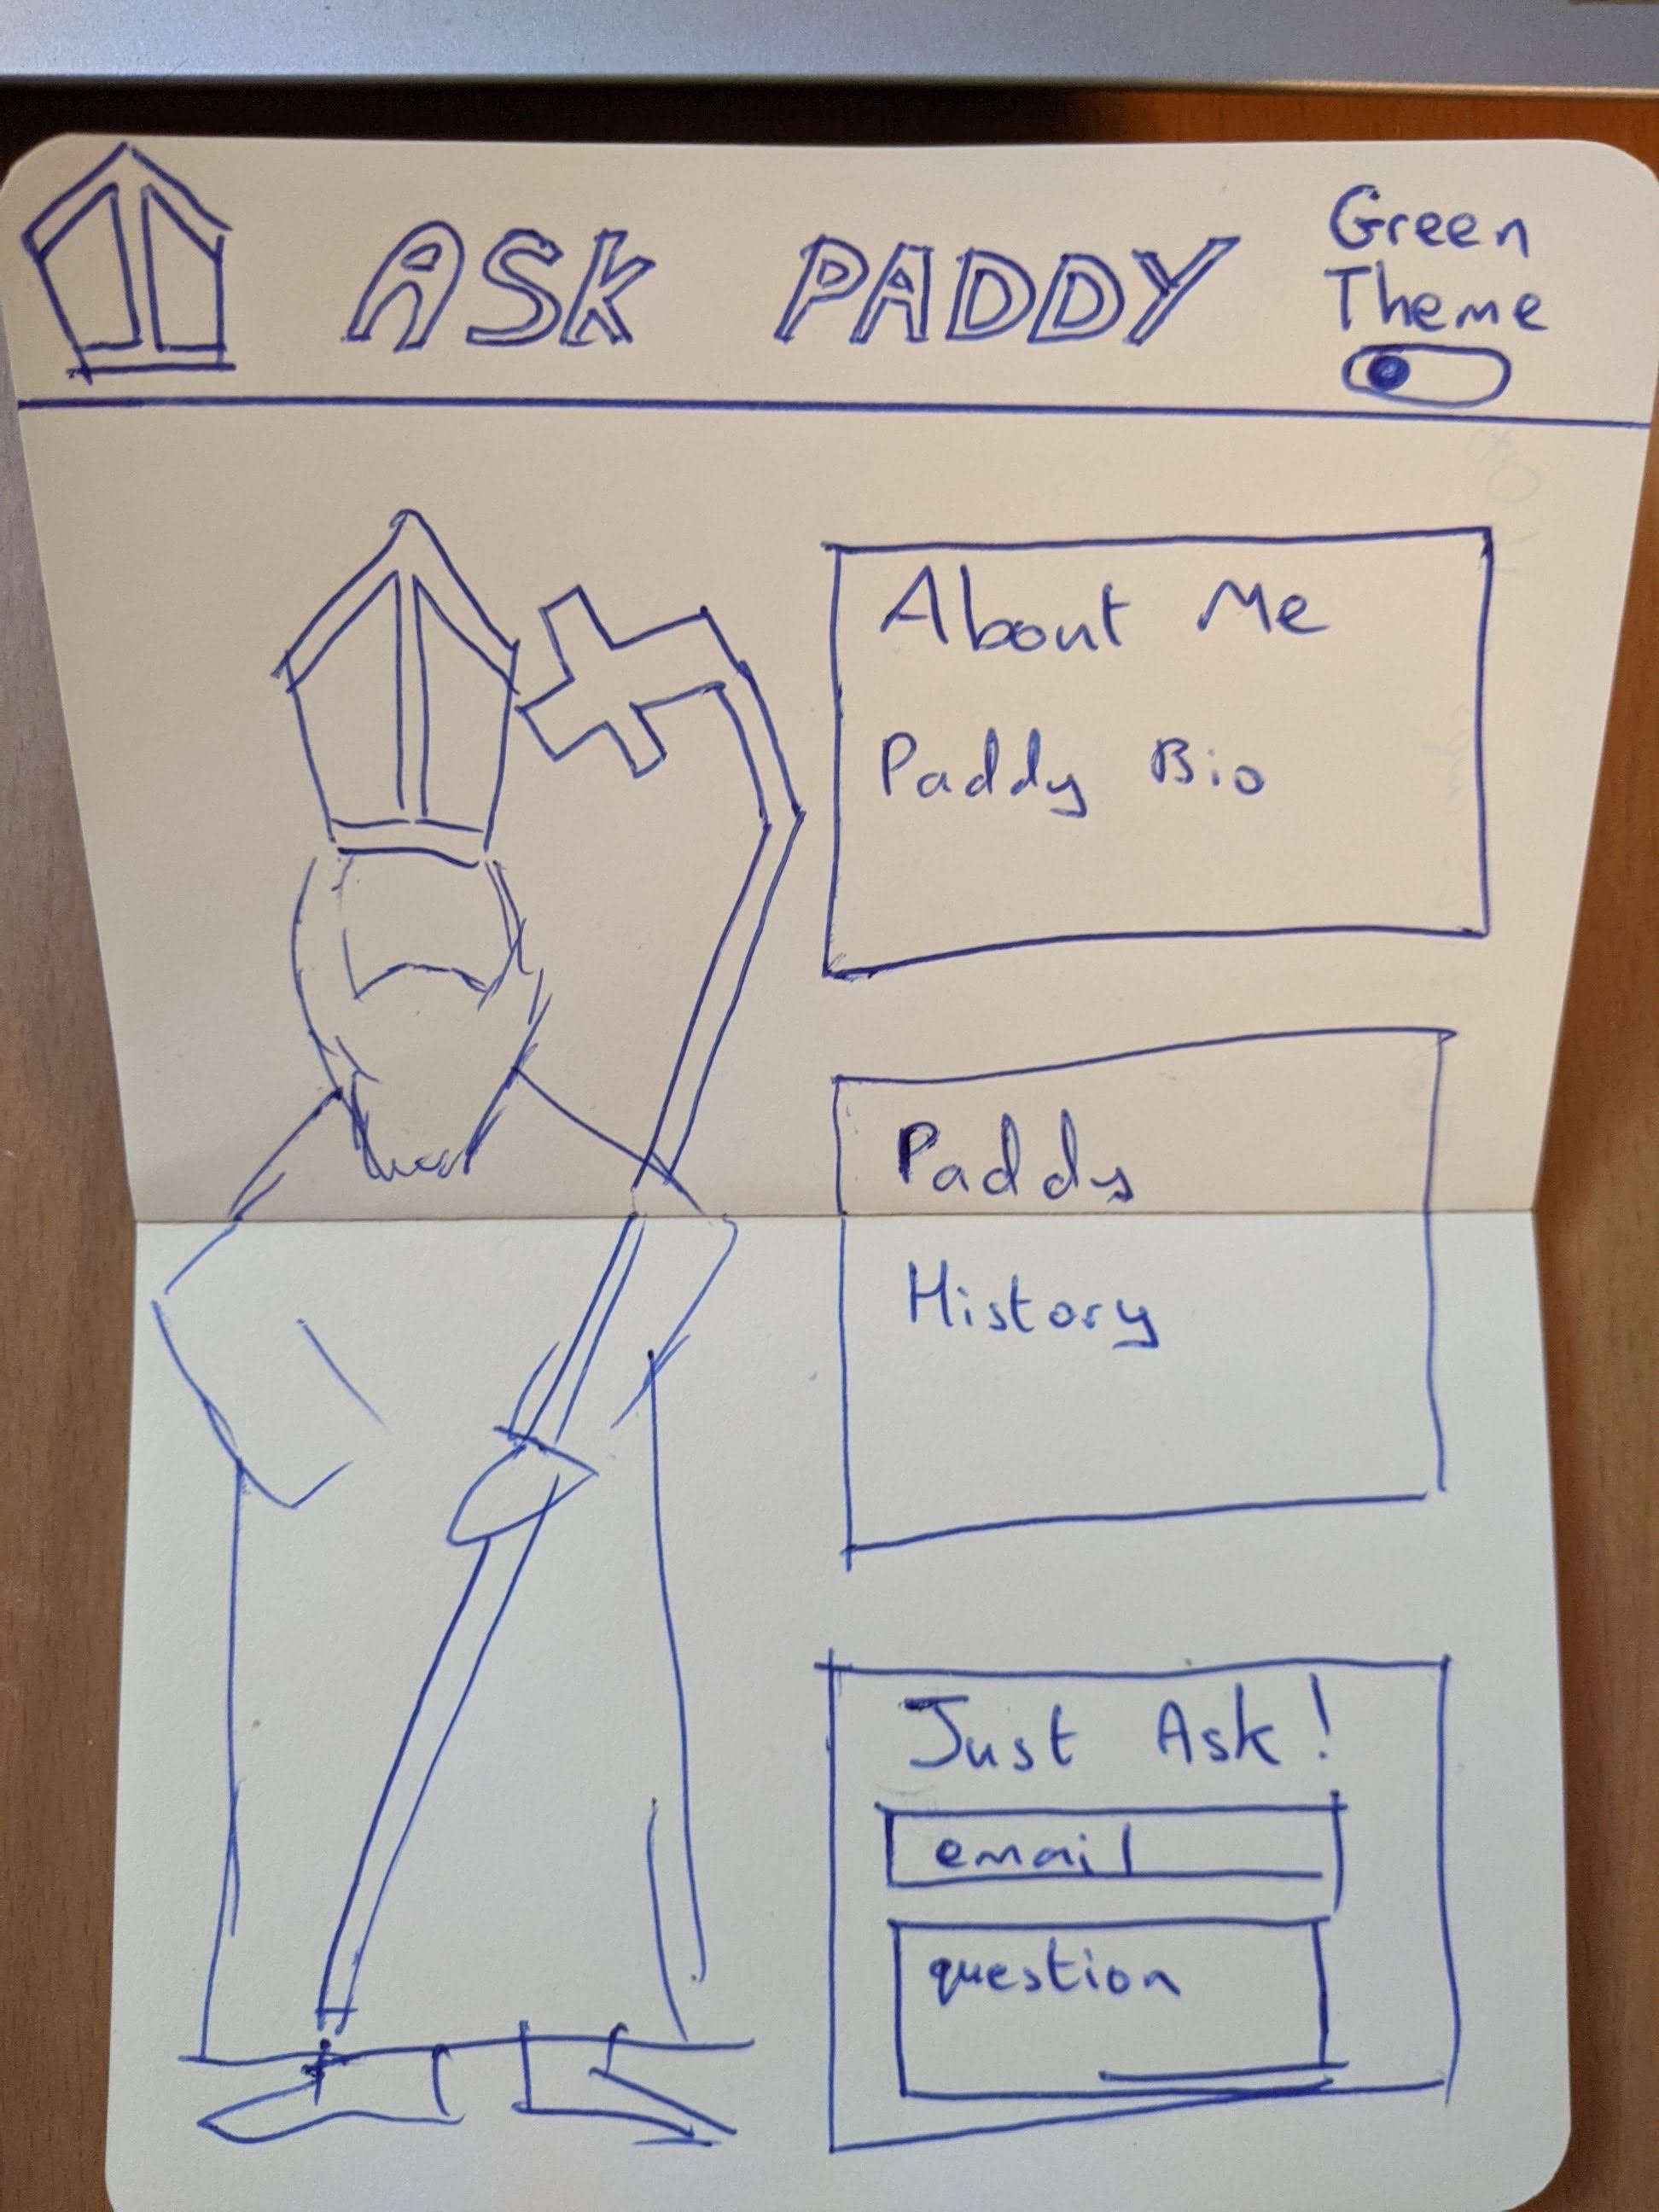 ASK PADDY
Green
Theme
About Me
Paddy Bio
Paddy
History
Just Ask!
email
question